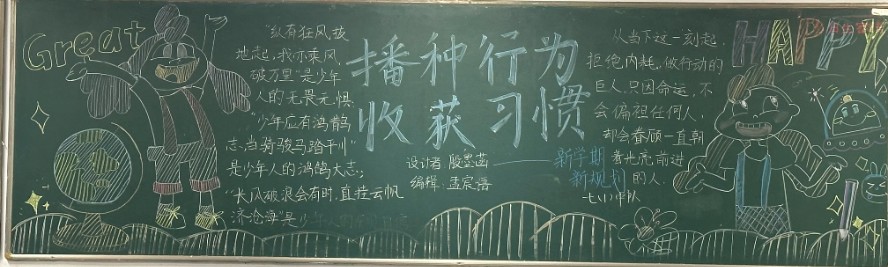 Great
"纵有狂风拔
地起,我亦乘风
破万里"是少年
人的无畏无惧;
"少年应有鸿鹄
志,当骑骏马踏平川"
是少年人的鸿鹄大志;
"长风破浪会有时,直挂云帆
济沧海"是少
播种行为
收获习惯
设计者:殷墨菡
编辑:孟宸
新学期
新规划
从当下这一刻起,
拒绝内耗,做行动的
巨人,只因命运,不
会偏袒任何人,
却会眷顾一直朝
着光亮前进
的人.
七(1)中队
HAPPY